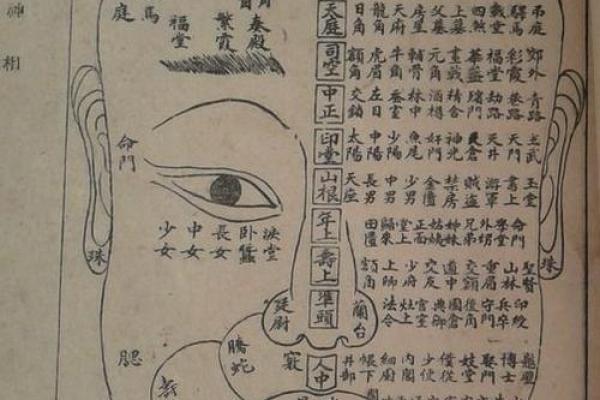 神
相
庭
馬
福堂
繁霞
角
天庭 日角 龍角 天府 房星 父墓 上墓 四煞 戰堂 驛馬 吊庭
司空 額角 虎眉 牛角 輔骨 元角 畫戟 華蓋 福堂 彩霞 郊外
中正 交鎖 左目 蚕室 林中 酒樽 精舍 嬪門 劫路 巷路 青路
印堂 太陽 中陽 少陽 魚尾 奸門 神光 天倉 天井 天門 玄武
山根 天座 長男 中男 少男 金匱 禁房 賊盗 游軍 書上 玉堂
年上 歸來 堂上 正面 姑姨 姊妹 兄弟 外甥 學堂 命門
壽上 額角 上師 少府 交友 道中 交額 重眉 山林 聖賢
準頭 蘭台 法令 灶上 宮室 典御 園倉 後角 守門 兵卒 印綬
人中 井部 帳下 細廚 內閣 少使 僮從 妓堂 嬰門 博士
命門
淚堂
卧蠶
長女
中女
少女
珠
珠
廷尉
騰蛇
腮